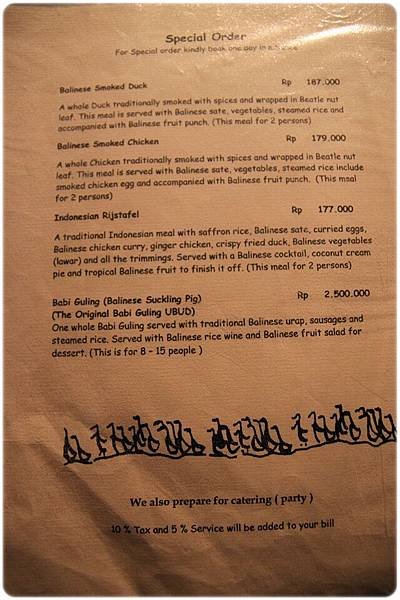 Special Order
For Special order kindly book one day in advance
Balinese Smoked Duck Rp 187.000
A whole Duck traditionally smoked with spices and wrapped in Beatle nut
leaf. This meal is served with Balinese sate, vegetables, steamed rice and
accompanied with Balinese fruit punch. (This meal for 2 persons)
Balinese Smoked Chicken Rp 179.000
A whole Chicken traditionally smoked with spices and wrapped in Beatle nut
leaf. This meal is served with Balinese sate, vegetables, steamed rice include
smoked chicken egg and accompanied with Balinese fruit punch. (This meal
for 2 persons)
Indonesian Rijstafel Rp 177.000
A traditional Indonesian meal with saffron rice, Balinese sate, curried eggs,
Balinese chicken curry, ginger chicken, crispy fried duck, Balinese vegetables
(lawar) and all the trimmings. Served with a Balinese cocktail, coconut cream
pie and tropical Balinese fruit to finish it off. (This meal for 2 persons)
Babi Guling (Balinese Suckling Pig) Rp 2.500.000
(The Original Babi Guling UBUD)
One whole Babi Guling served with traditional Balinese urap, sausages and
steamed rice. Served with Balinese rice wine and Balinese fruit salad for
dessert. (This is for 8 - 15 people )
We also prepare for catering ( party )
10 % Tax and 5 % Service will be added to your bill